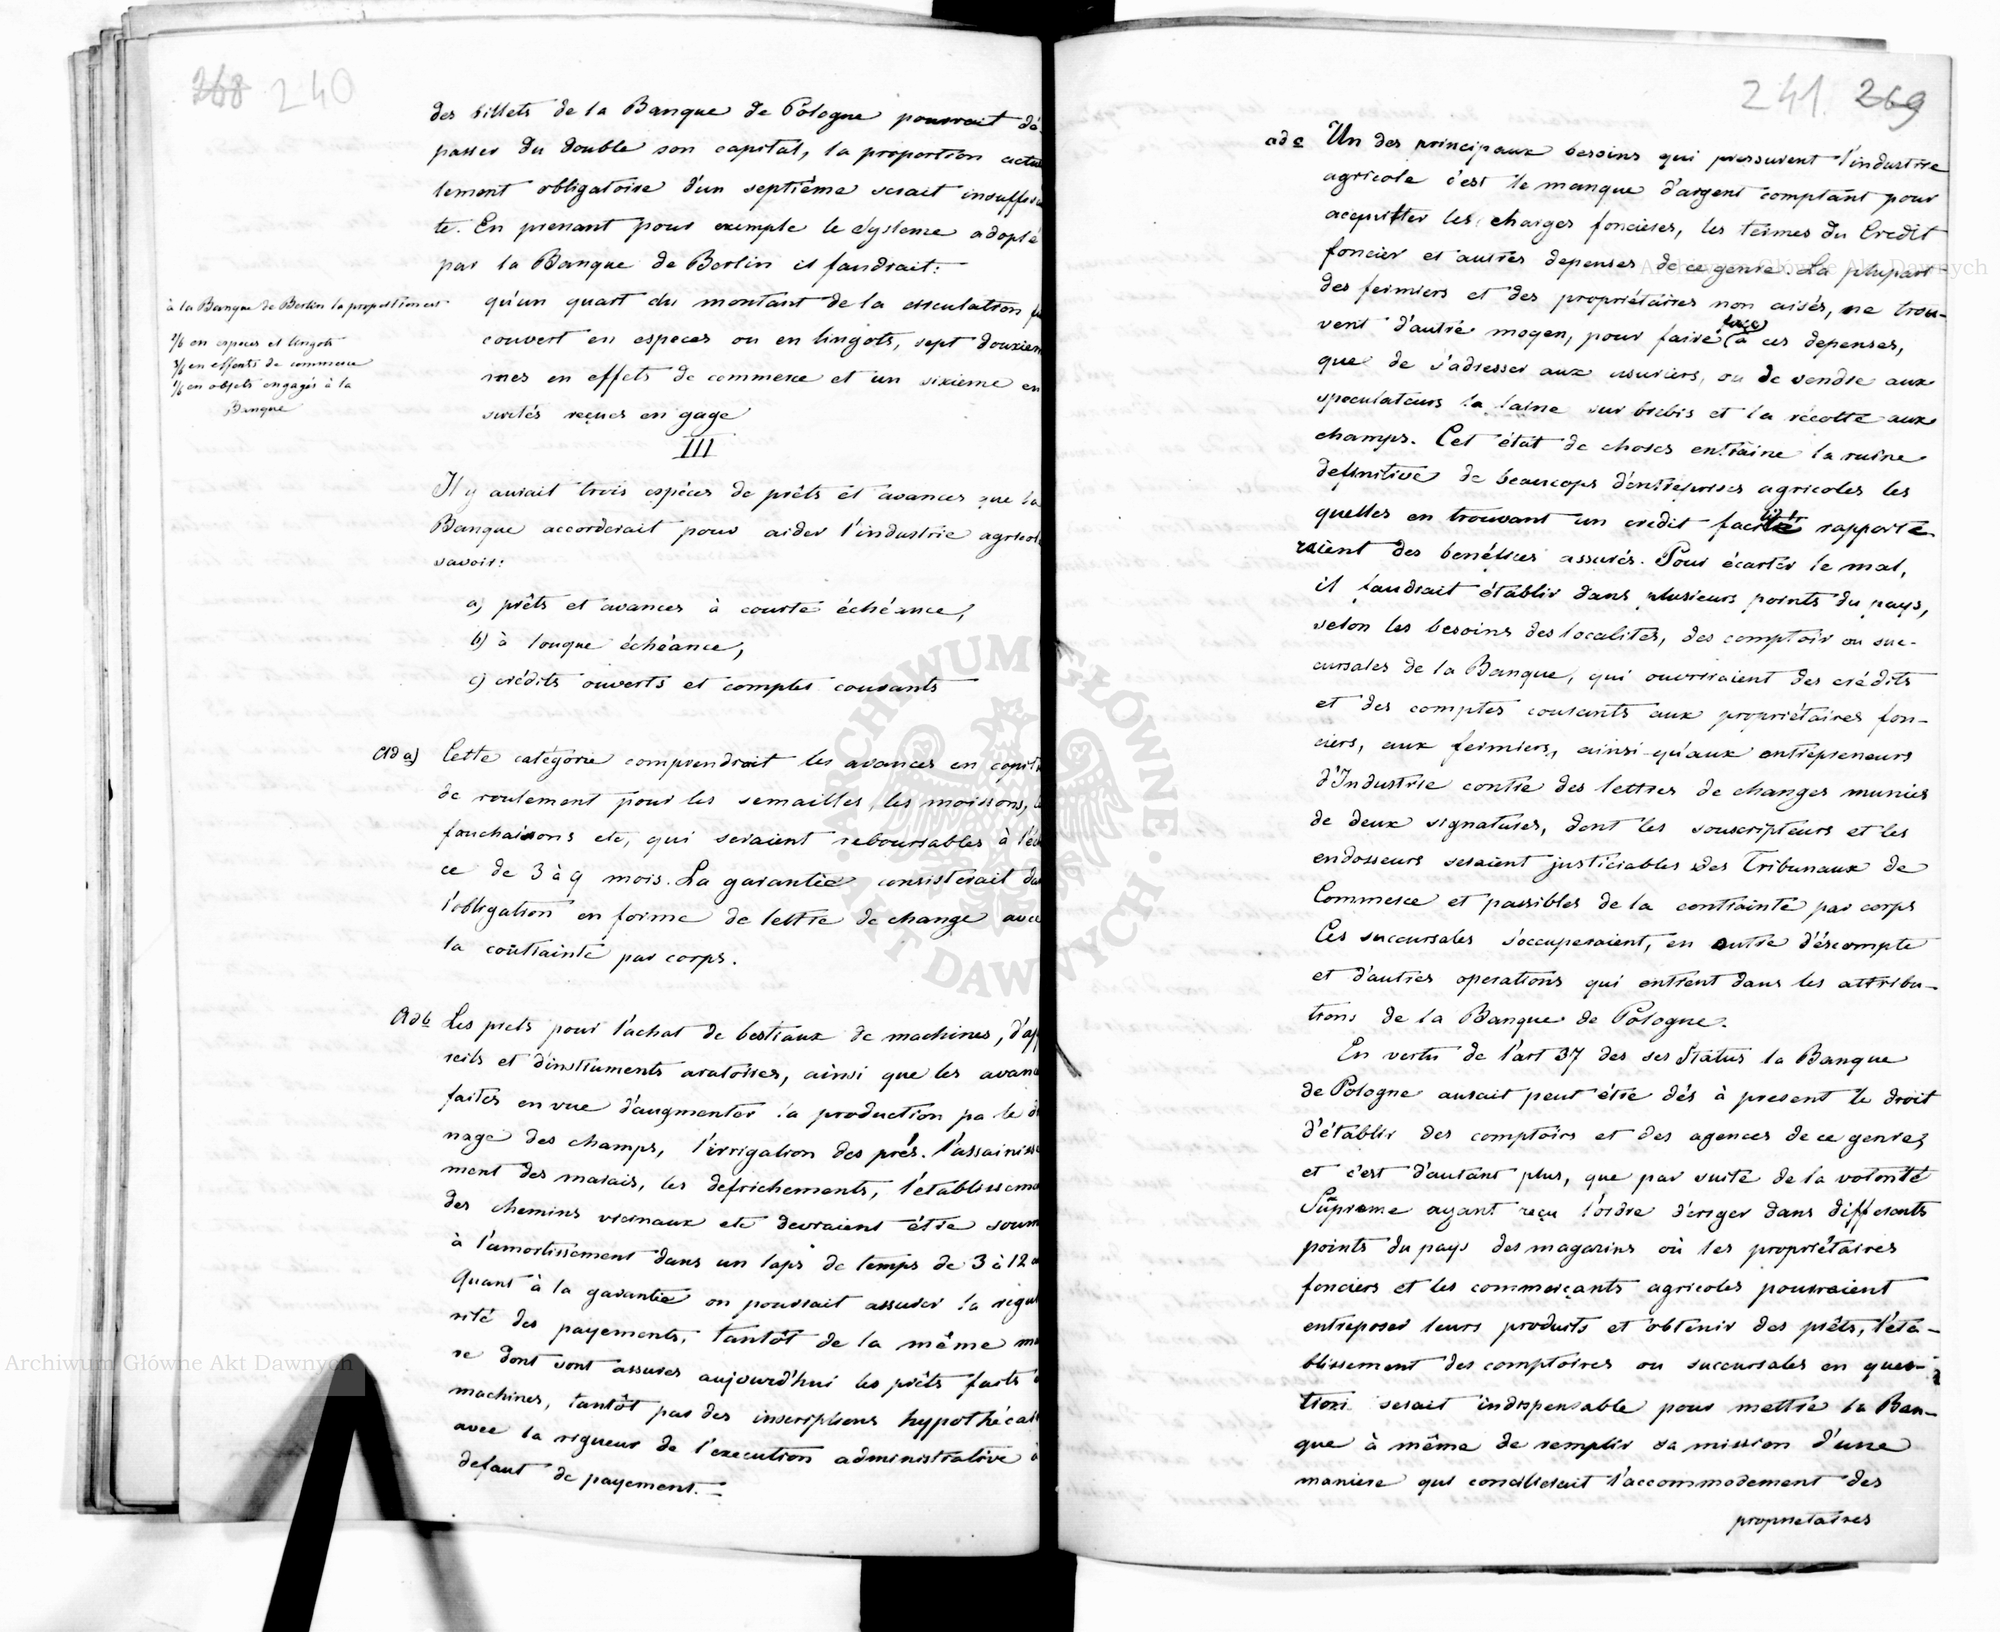 268 240
des billets de la Banque de Pologne pourrait dé-
passer du double son capital, la proportion actu
lement obligatoire d'un septième serait insuffisa
te. En prenant pour exemple le systeme adopté
par la Banque de Berlin il faudrait:
qu'un quart du montant de la circulation
couvert en especes ou en lingots, sept douxiem
mes en effets de commerce et un sixieme en
suretés reçues en gage
à la Banque de Berlin la proportion est
2/6 en especes et lingots
3/6 en effents de commerce
1/6 en objets engagés à la
Banque
III
Il y aurait trois espéces de prêts et avances que la
Banque accorderait pour aider l'industrie agricol
savoir:
a) prêts et avances à courte échéance,
b) à longue échéance,
c) crédits ouverts et comptes courants
Ad a) Cette catégorie comprendrait les avances en capit
de roulement pour les semailles, les moissons, l
fauchaisons etc, qui seraient reboursables à l'é
ce de 3 à 9 mois. La garantie consisterait da
l'obligation en forme de lettre de change avec
la contrainte par corps.
Ad b Les prets pour l'achat de bestiaux de machines, d'app
reils et d'instruments aratoires, ainsi que les avan
faites en vue d'augmenter la production pa le d
nage des champs, l'irrigation des prés. l'assainisse
ment des marais, les defrichements, l'établisseme
des chemins vicinaux etc devraient être soum
à l'amortissement dans un laps de temps de 3 à 12 a
Quant à la garantie on pourrait assurer la regul
rité des payements, tantôt de la même ma
re dont sont assures aujourd'hui les prêts faits
machines, tantôt par des inscriptions hypothécai
avec la rigueur de l'execution administrative à
defaut de payement.
241. 269
ad c Un des principaux besoins qui pressurent l'industrie
agricole c'est le manque d'argent comptant pour
acquitter les charges foncieres, les termes du Credit
foncier et autres depenses de ce genre. La plupart
des fermiers et des propriétaires non aisés, ne trou-
vent d'autre moyen, pour faire face à ces depenses,
que de s'adresser aux usuriers, ou de vendre aux
speculateurs la laine sur brebis et la récolte aux
champs. Cet état de choses entraine la ruine
definitive de beaucoup d'entreprises agricoles les
quelles en trouvant un credit facile rapporte
raient des benéfices assurés. Pour écarter le mal,
il faudrait établir dans plusieurs points du pays,
selon les besoins des localites, des comptoir ou suc-
cursales de la Banque, qui ouvriraient des crédits
et des comptes courants aux propriétaires fon-
ciers, aux fermiers, ainsi qu'aux entrepreneurs
d'Industrie contre des lettres de changes munies
de deux signatures, dont les souscripteurs et les
endosseurs seraient justiciables des Tribunaux de
Commerce et passibles de la contrainte par corps
Ces succursales s'occuperaient, en outre d'éscompte
et d'autres operations qui entrent dans les attribu-
tions de la Banque de Pologne.
En vertu de l'art 37 des ses Status la Banque
de Pologne aurait peut être dés à present le droit
d'établir des comptoirs et des agences de ce genre,
et c'est d'autant plus, que par suite de la volonté
Suprême ayant reçu l'ordre d'eriger dans differents
points du pays des magazins où les propriétaires
fonciers et les commerçants agricoles pourraient
entreposer leurs produits et obtenir des prêts, l'éta-
blissement des comptoires ou succursales en ques-
tion serait indispensable pour mettre la Ban-
que à même de remplir sa mission d'une
maniere qui concilierait l'accommodement des
proprietaires
Archiwum Główne Akt Dawnych
Archiwum Główne Akt Dawnych
ARCHIWUM GŁÓWNE · AKT DAWNYCH ·